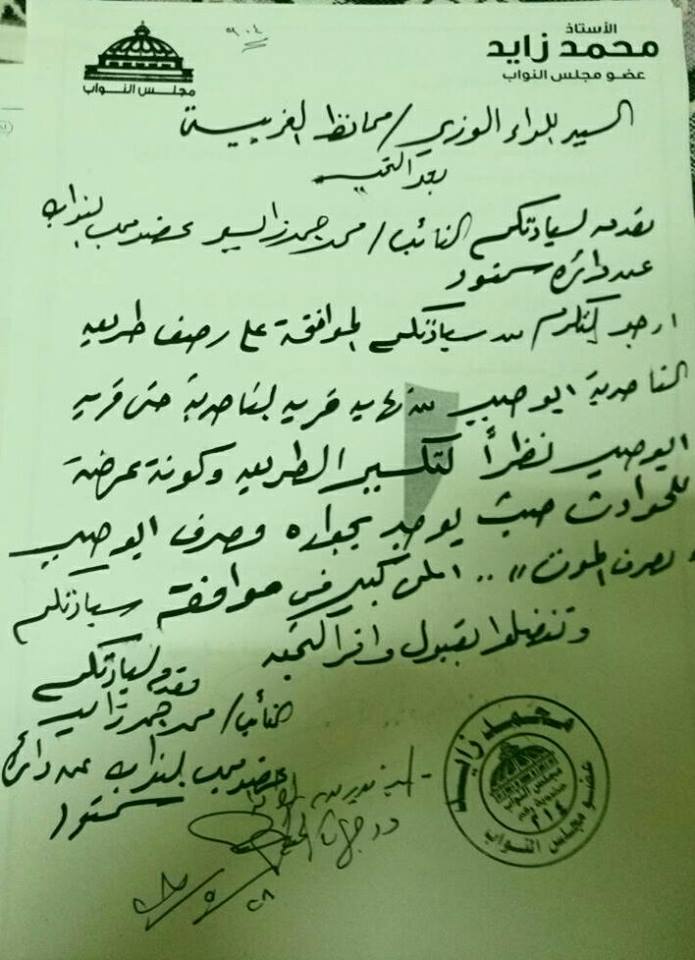 ٩٠٤
الأستاذ
محمد زايد
عضو مجلس النواب
مجلس النواب
السيد اللواء الوزير / محافظ الغربية
بعد التحية
مقدمه لسيادتكم النائب / محمد حمد زايد عضو مجلس النواب
عن دائرة سمنود
ارجو التكرم من سيادتكم الموافقة على رصف طريق
الناصرية ابوصير من نهاية قرية الناصرية حتى قرية
ابوصير نظراً لتكسير الطريق وكونة عرضة
للحوادث حيث يوجد بجواره مصرف ابوصير
مصرف الموت )) .. املى كبير فى موافقة سيادتكم
وتفضلوا بقبول وافر التحية
مقدم لسيادتكم
النائب / محمد حمد زايد
عضو مجلس النواب عن دائرة
سمنود
محمد زايد
مجلس النواب
٢١٤
عضو مجلس النواب